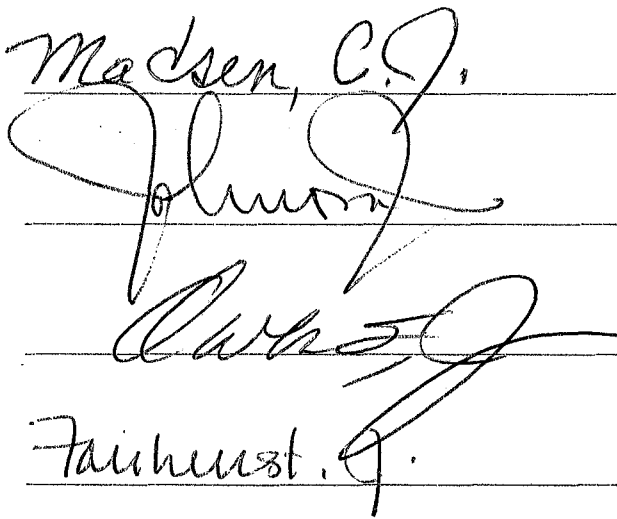 Madsen, C.J.
Johnson, J
Owens, J
Fairhurst. J.